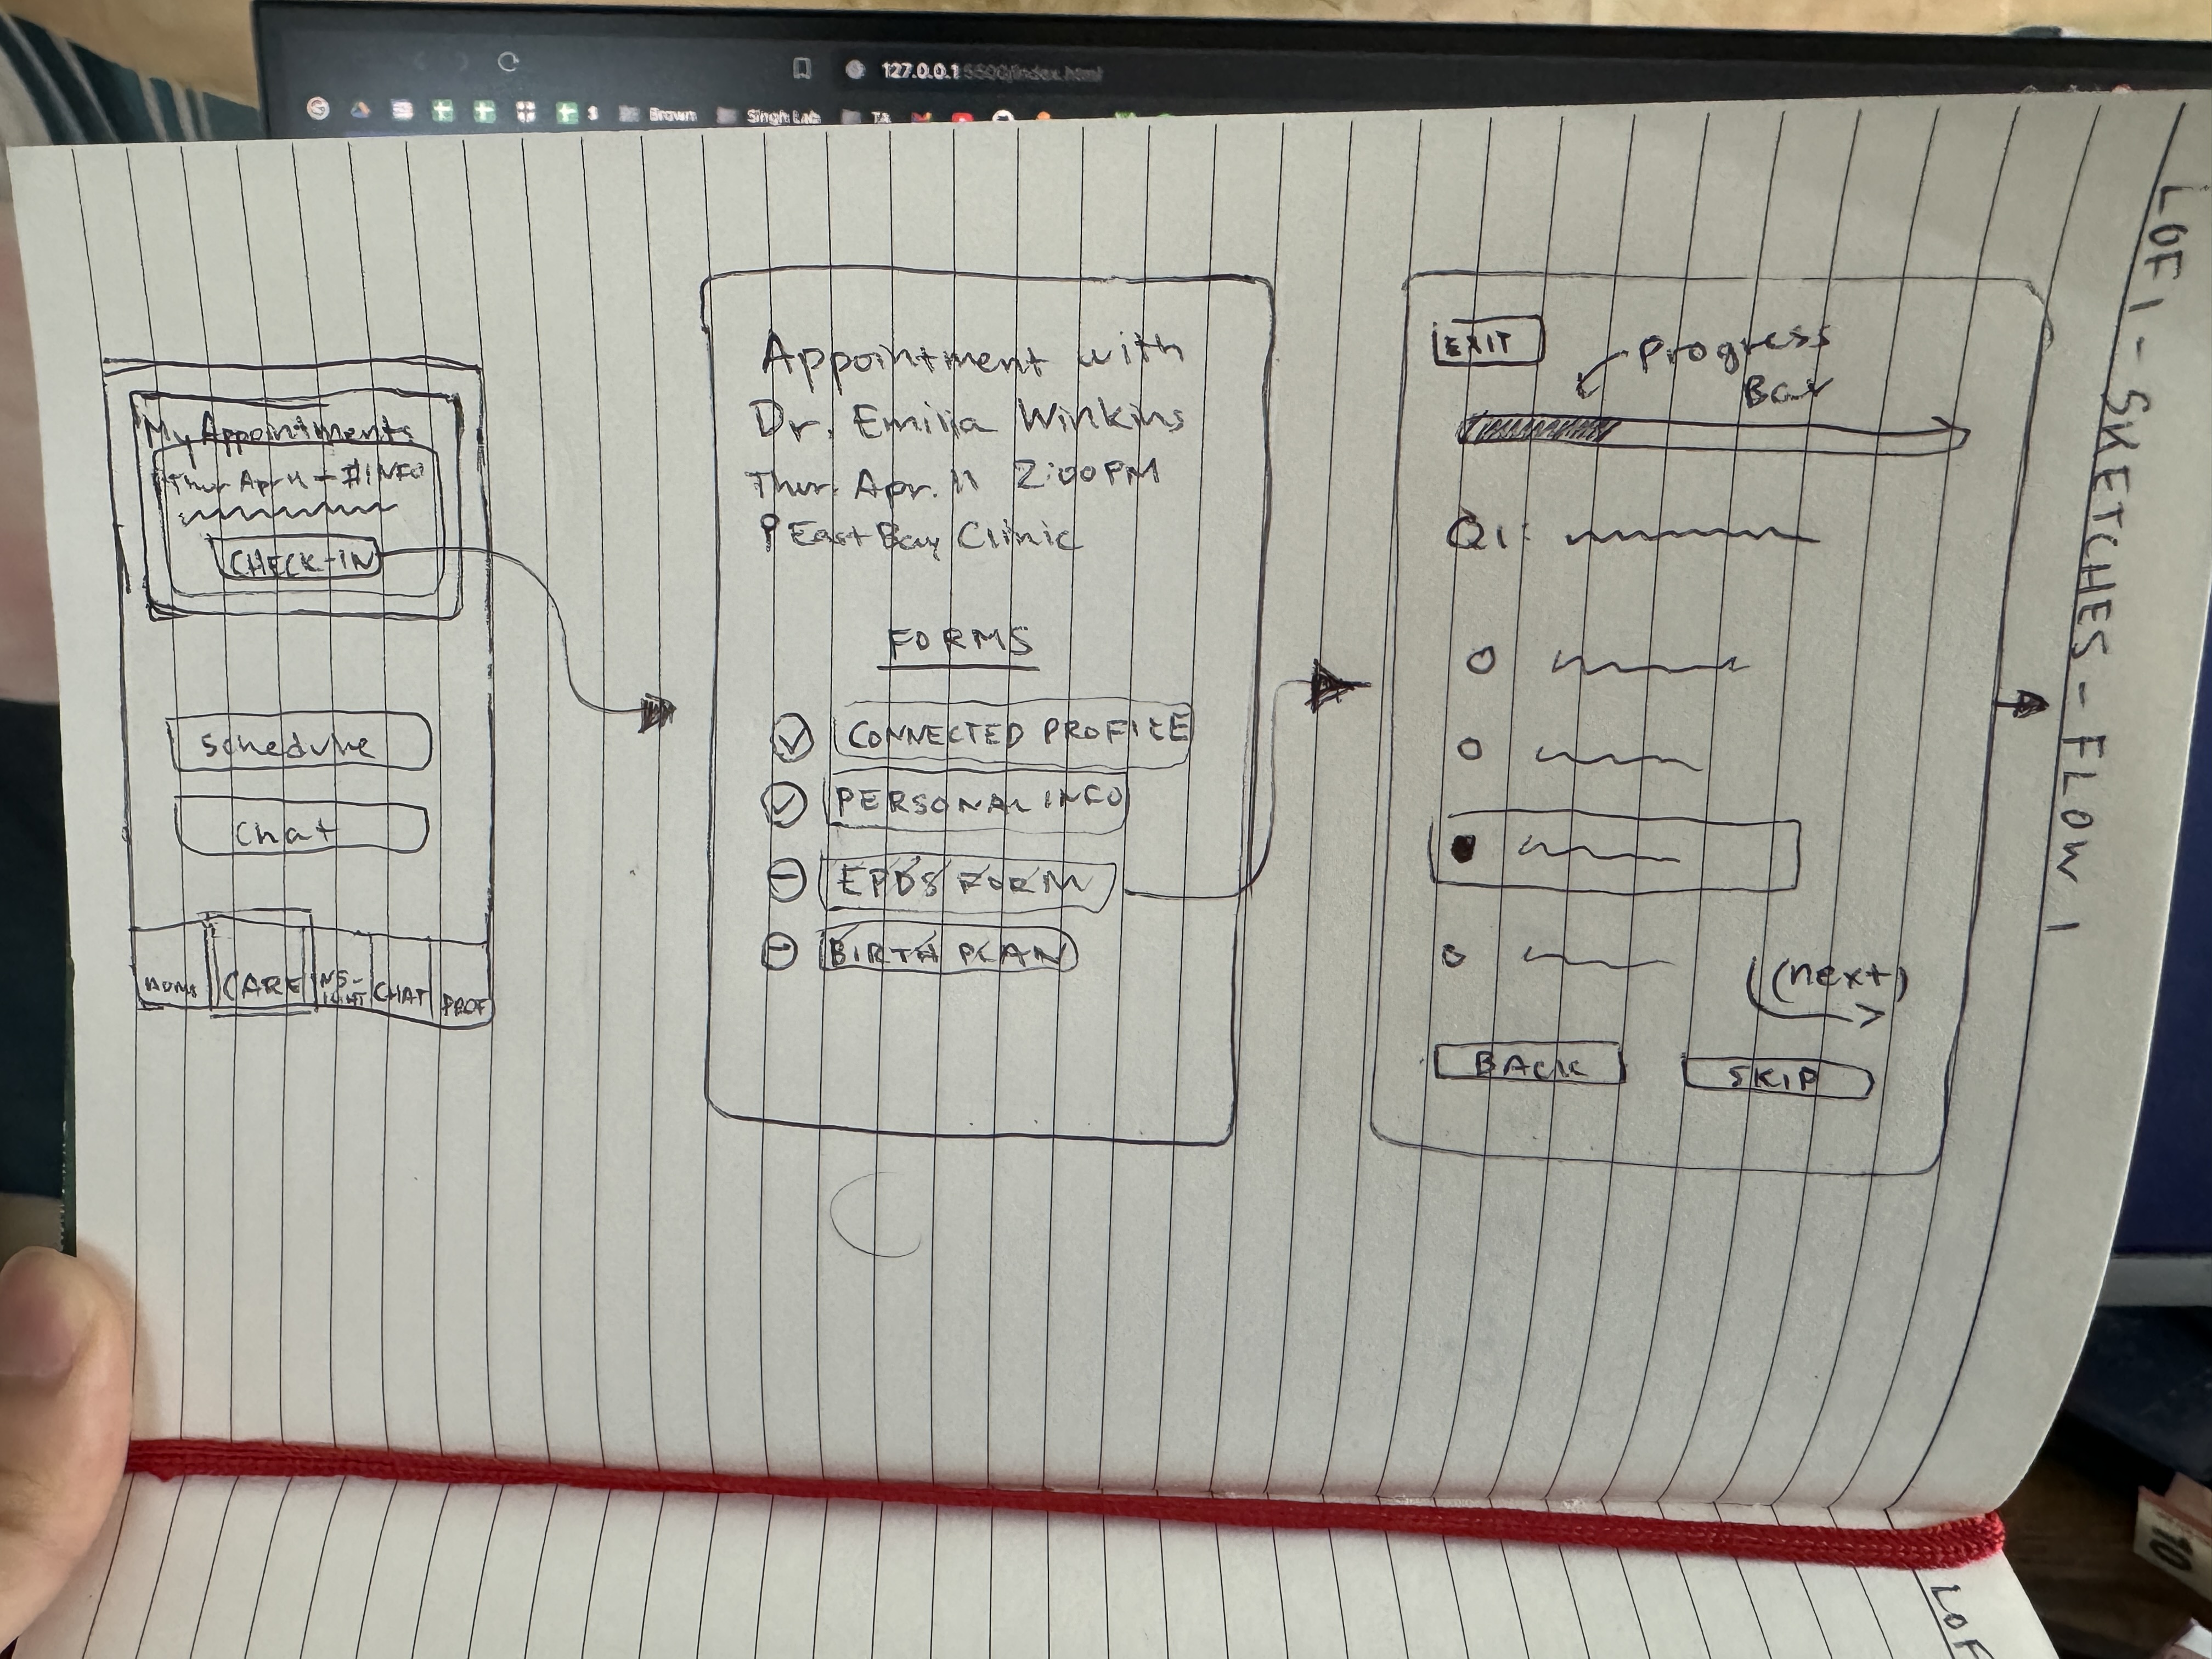 127.0.0.1:5500/index.html
$ Brown Singh Lab TA
LOFI - SKETCHES - FLOW 1
My Appointments
Thur Apr 11 - #INFO
CHECK-IN
Schedule
Chat
HOME CARE INS-
IGHT CHAT PROF
Appointment with
Dr. Emilia Winkins
Thur. Apr. 11 2:00PM
East Bay Clinic
FORMS
CONNECTED PROFILE
PERSONAL INFO
EPDS FORM
BIRTH PLAN
EXIT
Progress
Bar
Q1:
(next)
BACK
SKIP
LOF
10